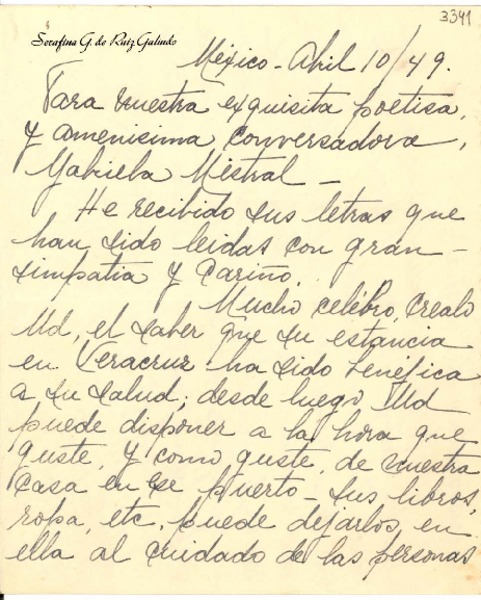 3341
Serafina G. de Ruiz Galindo
México - Abril 10/49.
Para nuestra exquisita poetisa,
y amenisima conversadora,
Gabriela Mistral -
He recibido sus letras que
han sido leidas con gran -
simpatia y cariño.
Mucho celebro, crealo
Ud, el saber que su estancia
en Veracruz ha sido benéfica
a su salud; desde luego Ud
puede disponer a la hora que
guste, y como guste, de nuestra
casa en ese puerto - sus libros,
ropa, etc, puede dejarlos, en
ella al cuidado de las personas